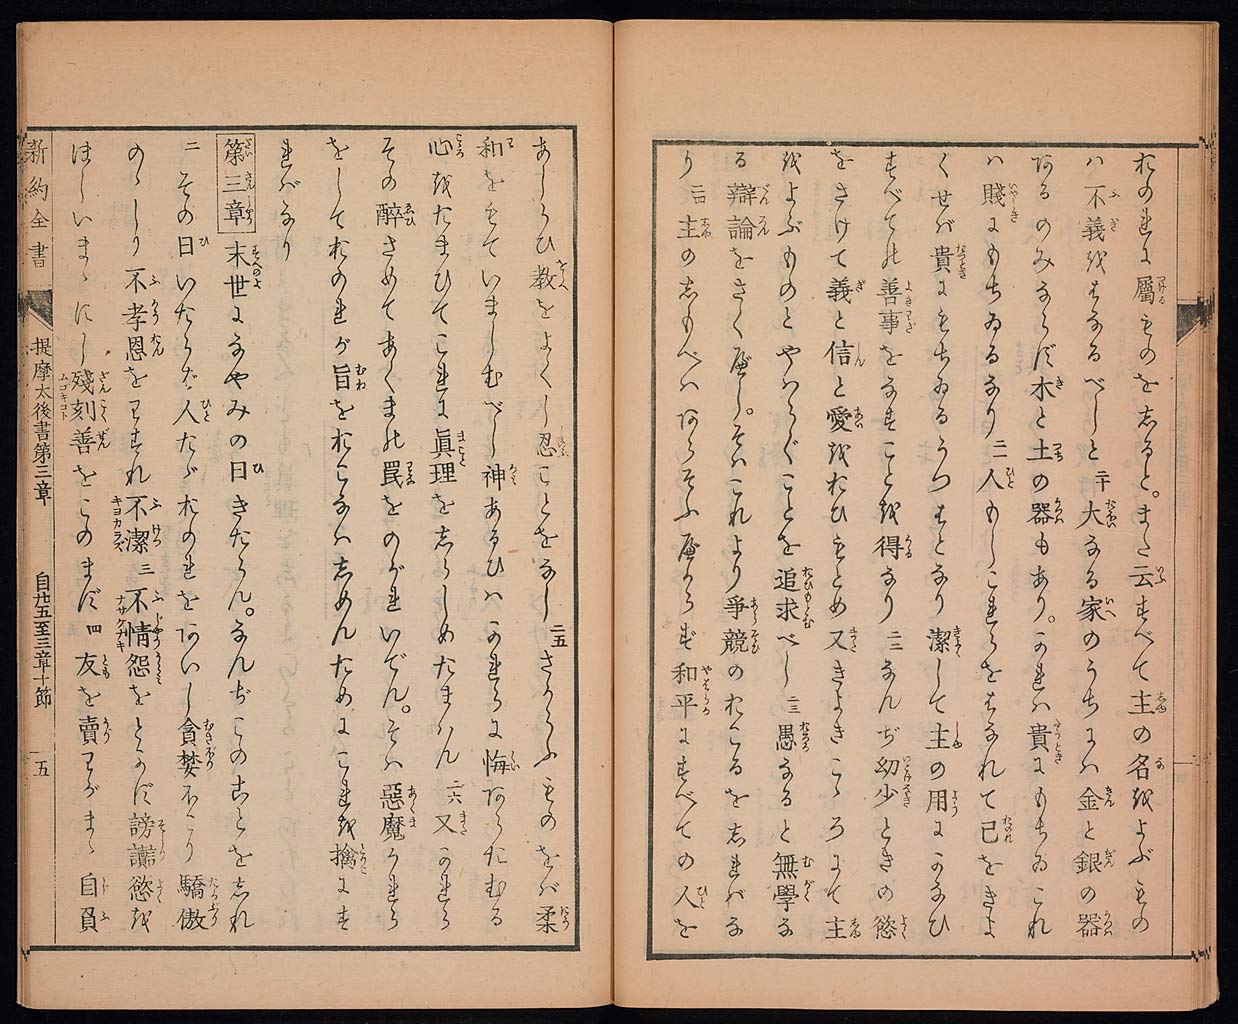 おのれに屬ものをしると。また云すべて主の名をよぶもの
ハ不義をはなるべしと 二十 大なる家のうちにハ金と銀の器
あるのみならず木と土の器もあり。かれハ貴にもちゐこれ
ハ賤にもちゐるなり 二一 人もしこれらをはなれて己をきよ
くせバ貴にもちゐるうつはとなり潔して主の用にかなひ
すべての善事をなすことを得なり 二二 なんぢ幼少ときの慾
をさけて義と信と愛をおひもとめ又きよきこゝろにて主
をよぶものとやハらぐことを追求べし 二三 愚なると無學な
る辯論をさくべし。そハこれより爭競のおこるをしれバな
り 二四 主のしもべハあらそふべからず和平にすべての人を
あしらひ教をよくし忍ことをなし 二五 さからふものをバ柔
和をもていましむべし神あるひハかれらに悔あらたむる
心をたまひてこれに眞理をしらしめたまハん 二六 又かれら
その醉さめてあくまの罠をのがれいでん。そハ惡魔かれら
をしておのれが旨をおこなハしめんためにこれを擒にす
れバなり
第三章 末世になやみの日きたらん。なんぢこのことをしれ
二 その日いたらバ人たゞおのれをあいし貪婪ほこり驕傲
のゝしり不孝恩をわすれ不潔 三 不情怨をとかず謗讟慾を
ほしいまゝにし殘刻善をこのまず 四 友を賣わがまゝ自負
新約全書 提摩太後書第三章 自廿五至三章十節 五